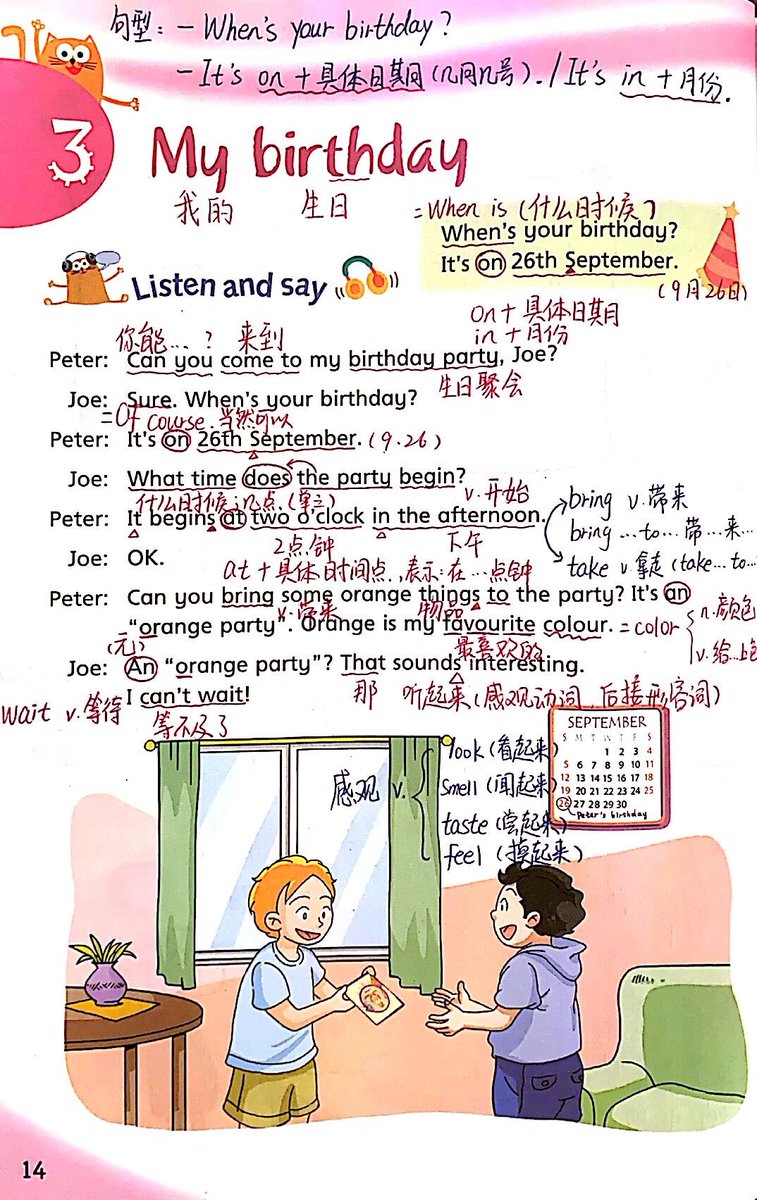 句型：- When's your birthday?
- It's on + 具体日期间 (几月几号). / It's in + 月份.
3
My birthday
我的 生日
= When is (什么时候)
When's your birthday?
It's on 26th September.
(9月26日)
Listen and say
on + 具体日期
in + 月份
你能...? 来到
Peter: Can you come to my birthday party, Joe?
生日聚会
Joe: Sure. When's your birthday?
= Of course. 当然可以
Peter: It's on 26th September. (9.26)
Joe: What time does the party begin?
什么时候；几点 (单三) v. 开始
Peter: It begins at two o'clock in the afternoon.
2点钟 下午
bring v. 带来
bring ...to... 带...来...
take v. 拿走 (take...to...
Joe: OK.
at + 具体时间点，表示：在...点钟
Peter: Can you bring some orange things to the party? It's an
v. 带来 物品
"orange party". Orange is my favourite colour.
最喜欢的
= color n. 颜色
v. 给...上色
(元)
Joe: An "orange party"? That sounds interesting.
那 听起来 (感观动词，后接形容词)
I can't wait!
wait v. 等待 等不及了
感观 v.
look (看起来)
smell (闻起来)
taste (尝起来)
feel (摸起来)
SEPTEMBER
S M T W T F S
1 2 3 4
5 6 7 8 9 10 11
12 13 14 15 16 17 18
19 20 21 22 23 24 25
26 27 28 29 30
Peter's birthday
14